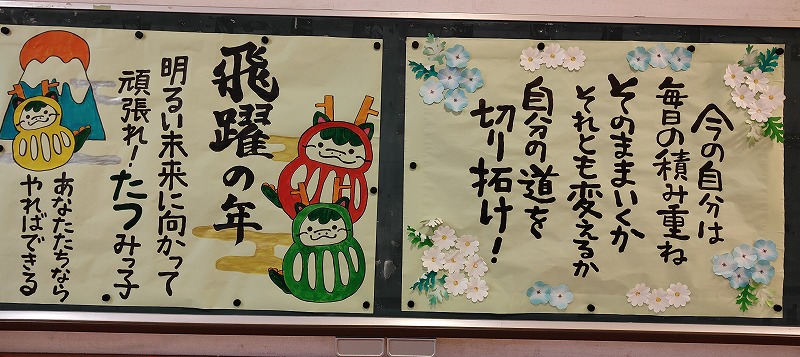 今の自分は
毎日の積み重ね
そのままいくか
それとも変えるか
自分の道を
切り拓け！
飛躍の年
明るい未来に向かって
頑張れ！たつみっ子
あなたたちなら
やればできる